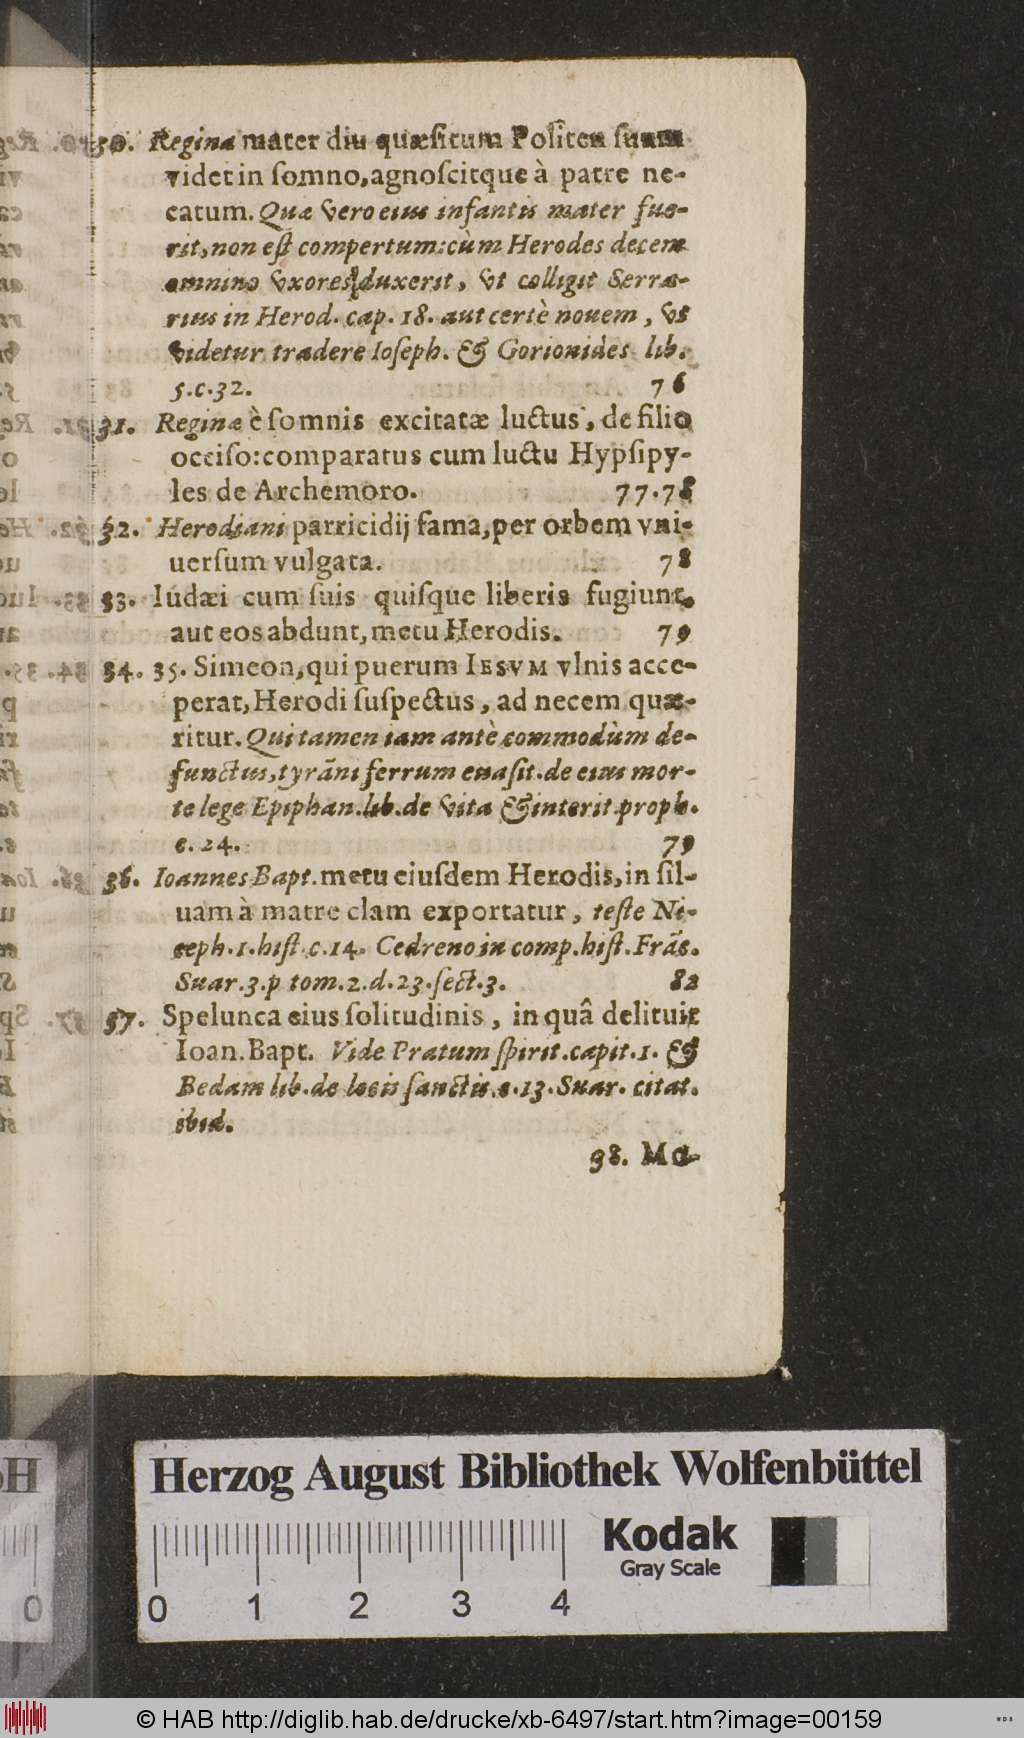 30. Regina mater diu quæsitum Politen suum
videt in somno, agnoscitque à patre ne-
catum. Quæ vero eius infantis mater fue-
rit, non est compertum: cùm Herodes decem
omnino vxores duxerit, vt colligit Serra-
rius in Herod. cap. 18. aut certè nouem, vt
videtur tradere Ioseph. & Gorionides lib.
5. c. 32. 76
31. Reginæ è somnis excitatæ luctus, de filio
occiso: comparatus cum luctu Hypsipy-
les de Archemoro. 77. 78
32. Herodiani parricidij fama, per orbem vni-
uersum vulgata. 78
33. Iudæi cum suis quisque liberis fugiunt,
aut eos abdunt, metu Herodis. 79
34. 35. Simeon, qui puerum IESVM vlnis acce-
perat, Herodi suspectus, ad necem quæ-
ritur. Qui tamen iam antè commodùm de-
functus, tyrãni ferrum euasit. de eius mor-
te lege Epiphan. lib. de vita & interit. proph.
c. 24. 79
36. Ioannes Bapt. metu eiusdem Herodis, in sil-
uam à matre clam exportatur, teste Ni-
ceph. 1. hist. c. 14. Cedreno in comp. hist. Frãs.
Suar. 3. p tom. 2. d. 23. sect. 3. 82
37. Spelunca eius solitudinis, in quâ delituit
Ioan. Bapt. Vide Pratum spirit. capit. 1. &
Bedam lib. de locis sanctis. c. 13. Suar. citat.
ibid.
98. Ma-
Herzog August Bibliothek Wolfenbüttel
Kodak
Gray Scale
0 1 2 3 4
© HAB http://diglib.hab.de/drucke/xb-6497/start.htm?image=00159